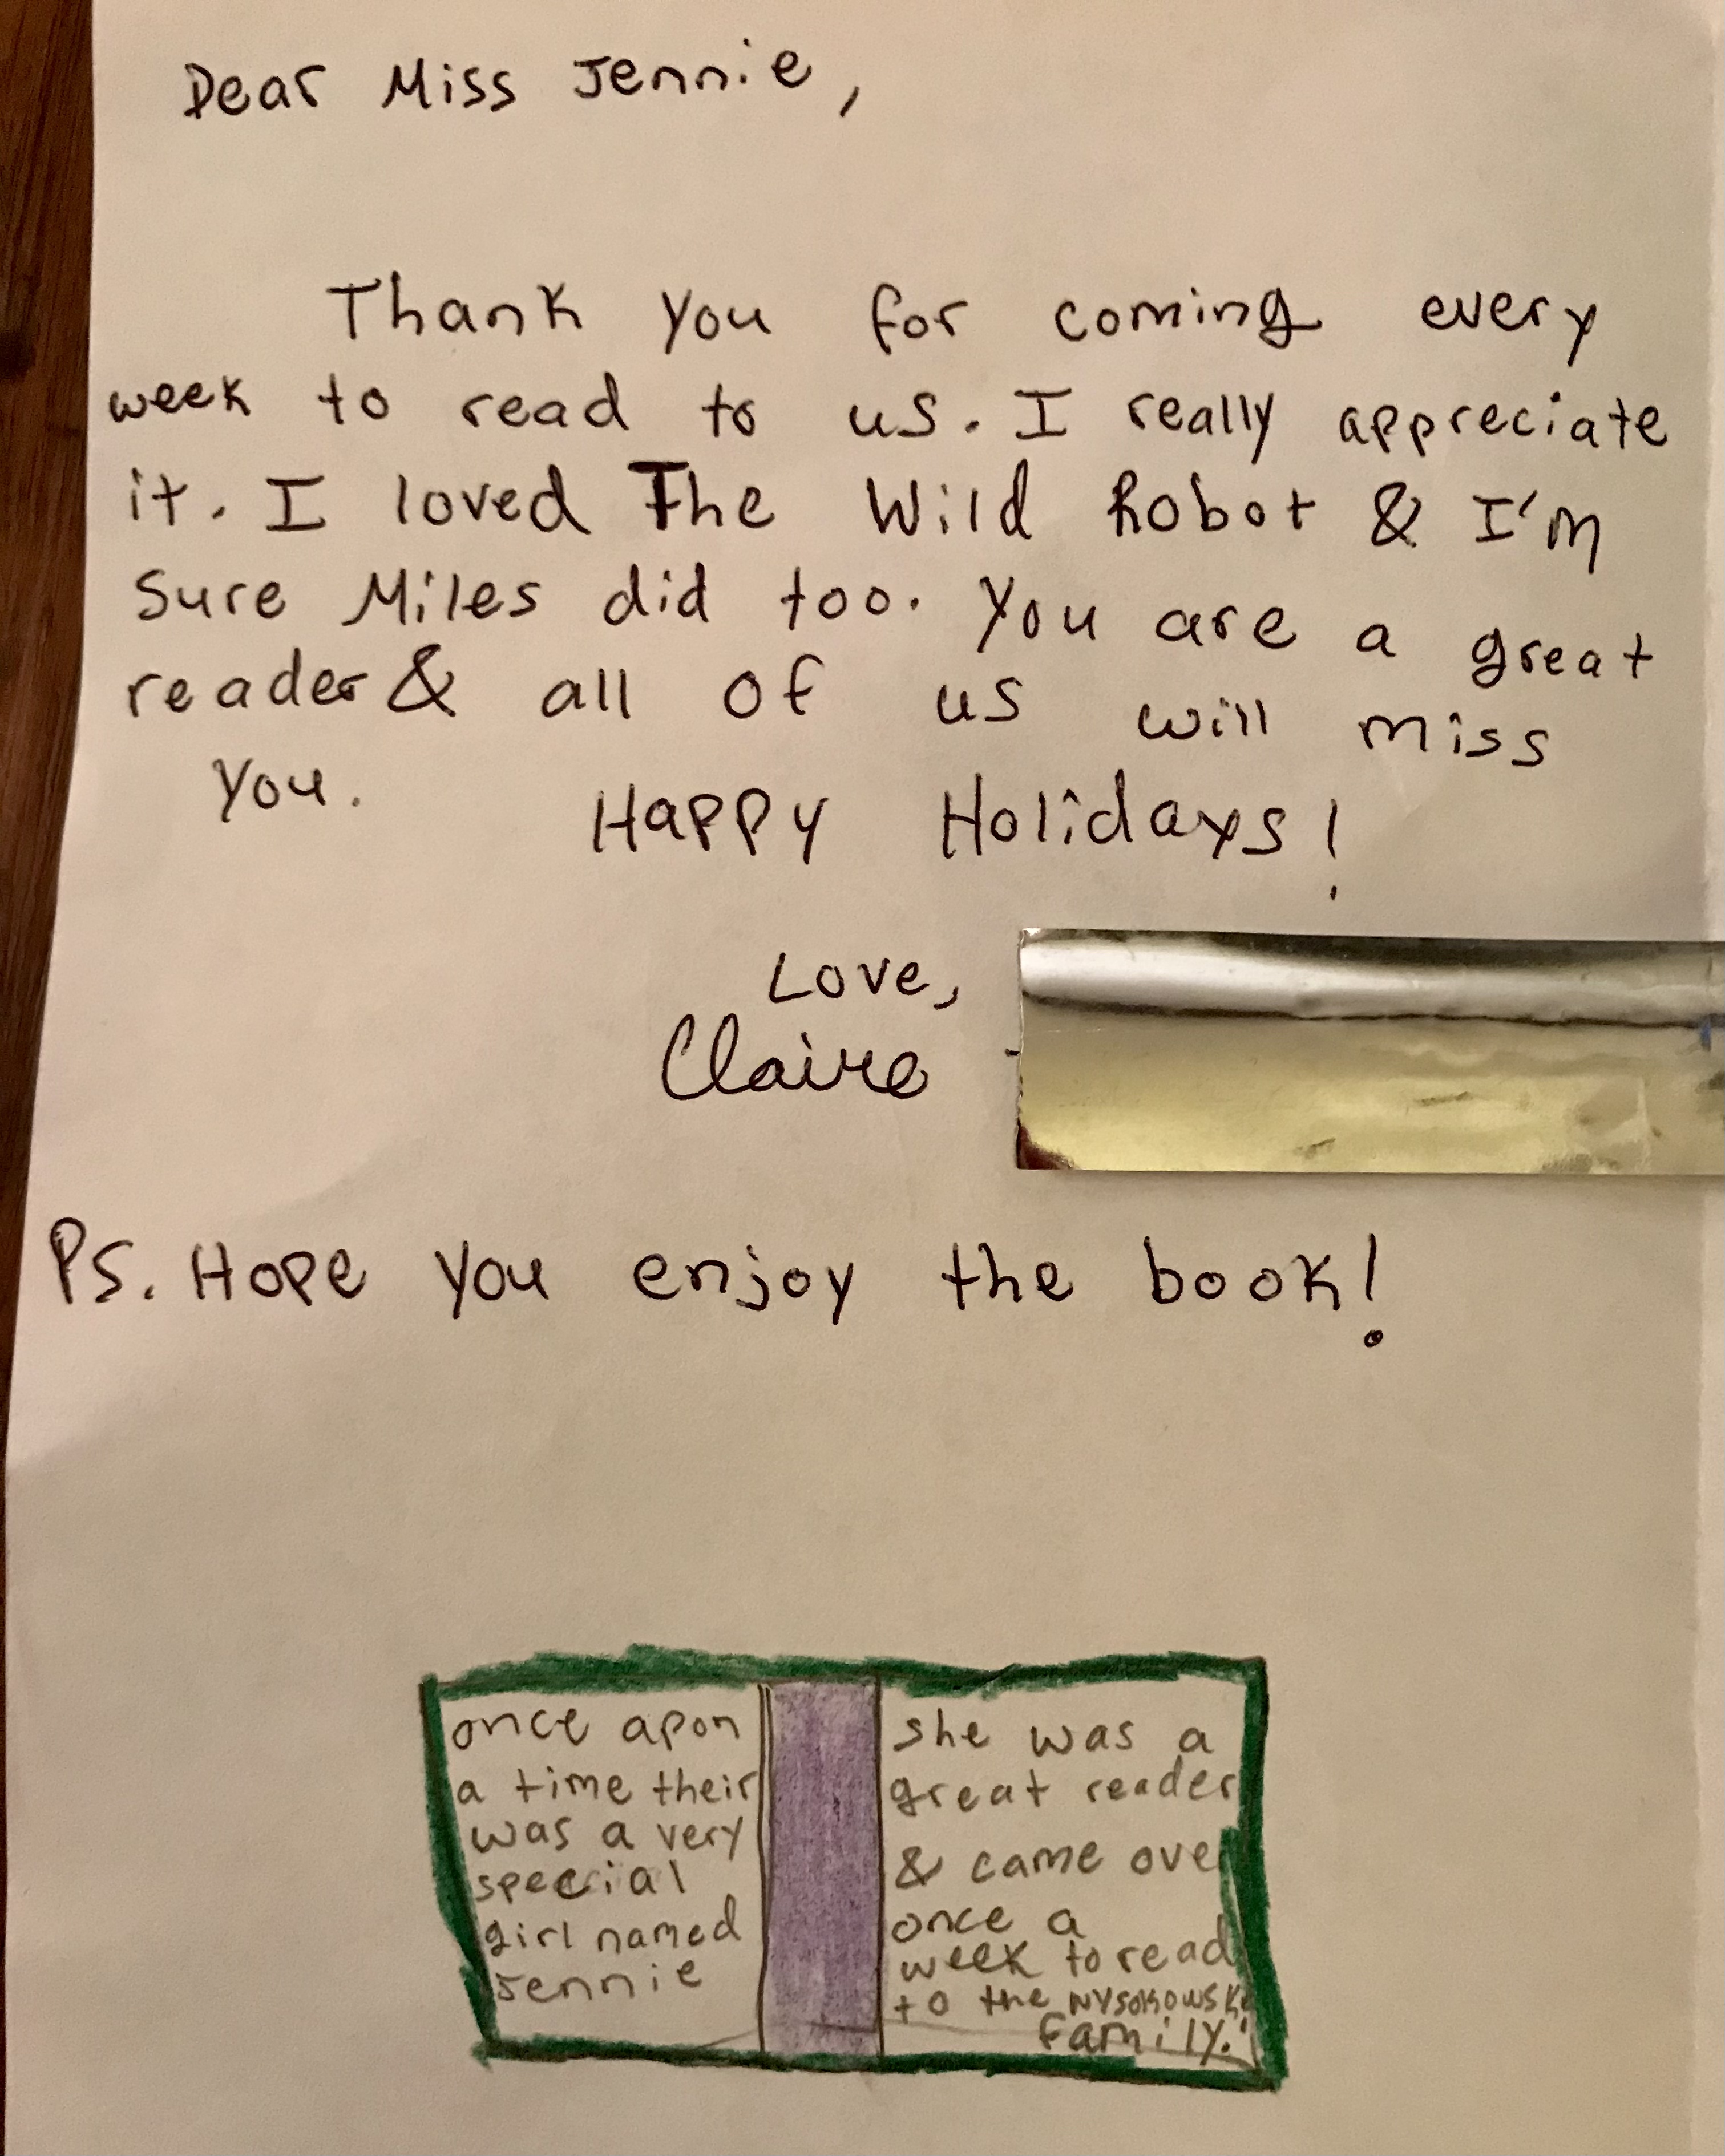 Dear Miss Jennie,
Thank you for coming every
week to read to us. I really appreciate
it. I loved The Wild Robot & I'm
sure Miles did too. You are a great
reader & all of us will miss
you.
Happy Holidays!
Love,
Claire
PS. Hope you enjoy the book!
once apon
a time their
was a very
special
girl named
Jennie
she was a
great reader
& came over
once a
week to read
to the
family.